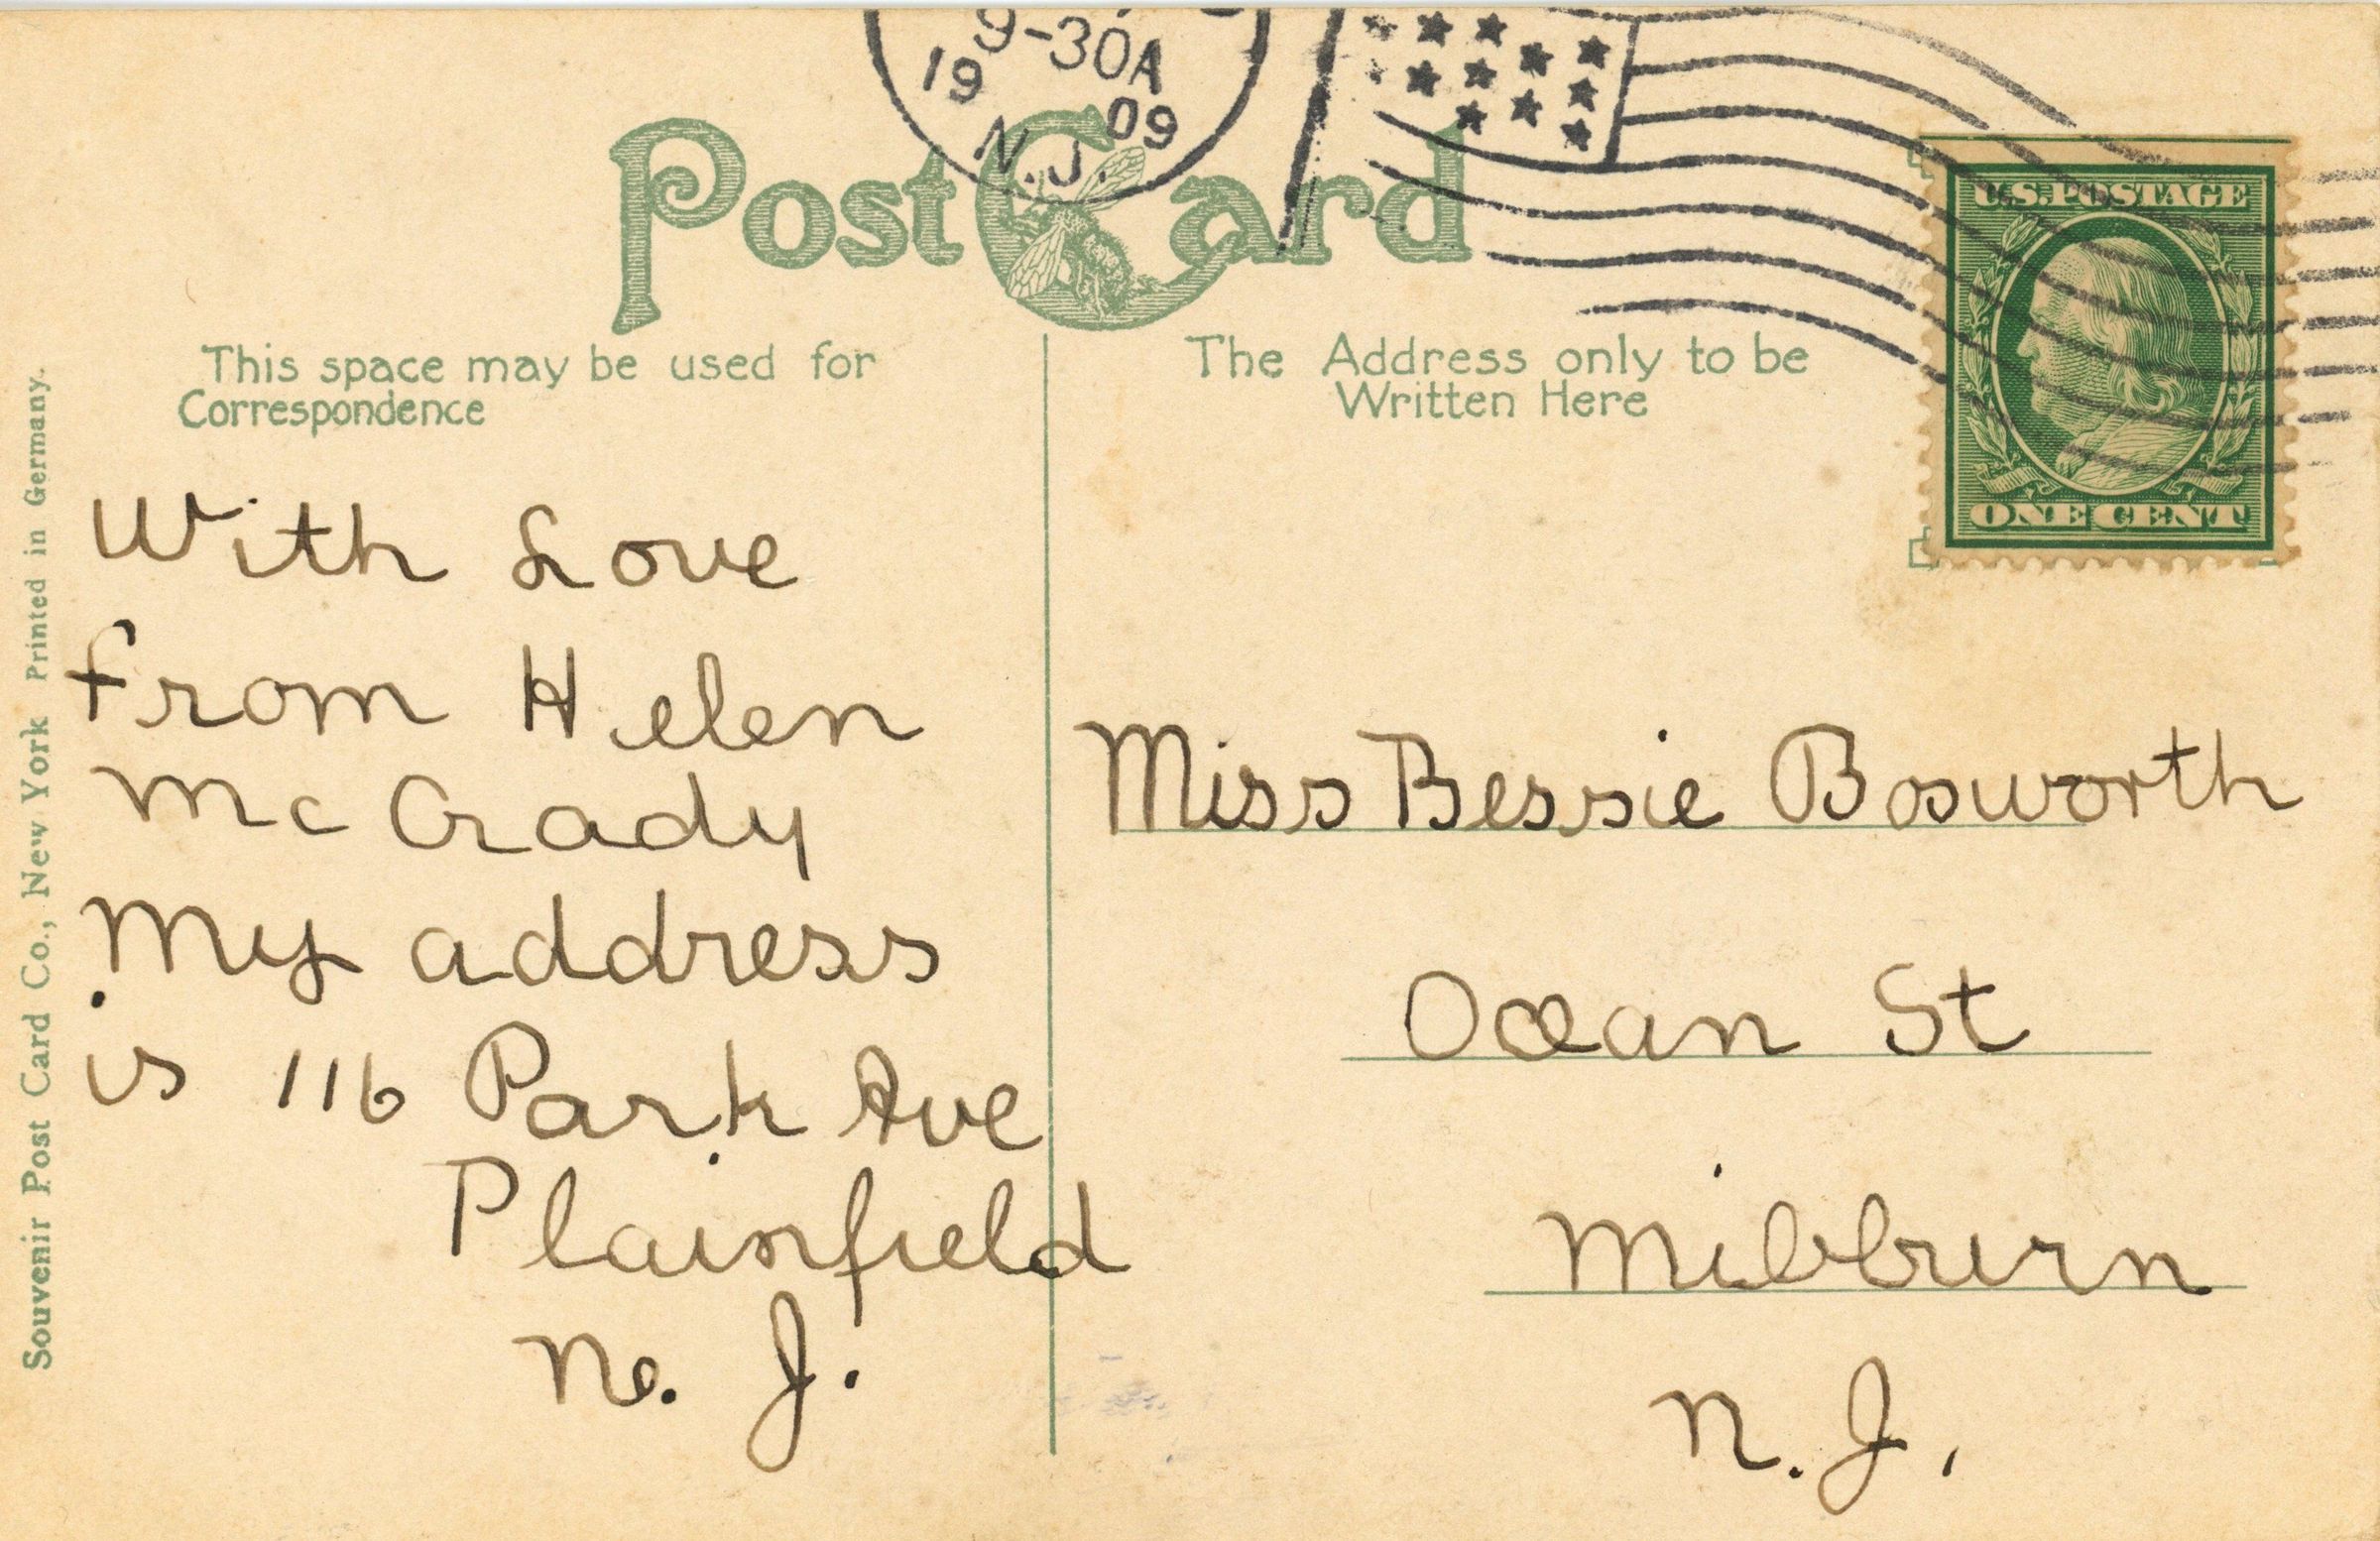 9-30A
19 09
N.J.
Post Card
This space may be used for
Correspondence
The Address only to be
Written Here
U.S. POSTAGE
ONE CENT
With Love
from Helen
Mc Crady
My address
is 116 Park Ave
Plainfield
Ne. J.
Miss Bessie Bosworth
Ocean St
Millburn
N. J.
Souvenir Post Card Co., New York Printed in Germany.